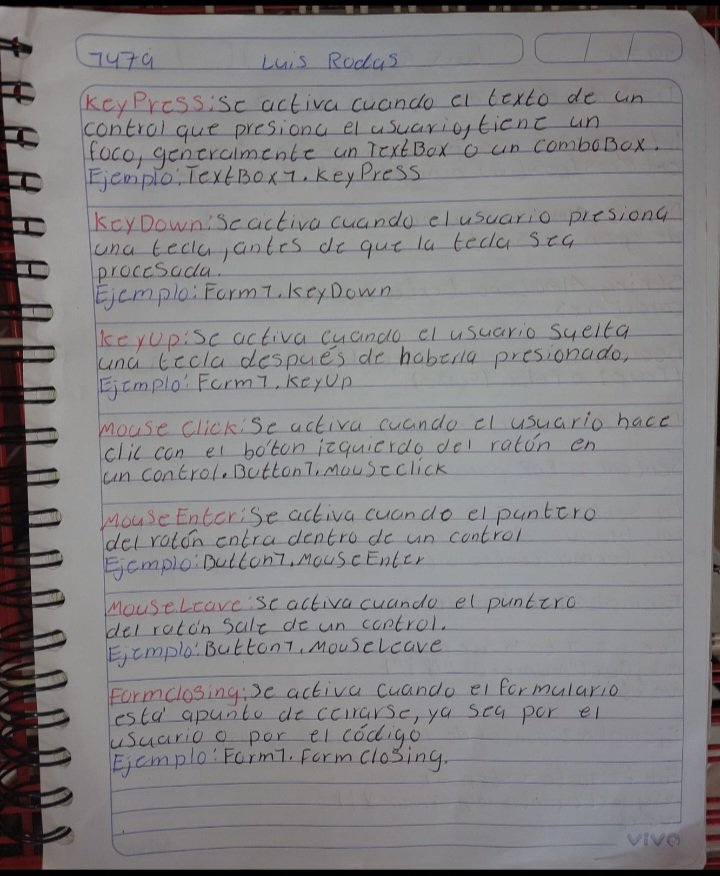 7479 Luis Rodas
KeyPress: Se activa cuando el texto de un
control que presiona el usuario, tiene un
foco, generalmente un TextBox o un comboBox.
Ejemplo: TextBox1.KeyPress
KeyDown: Se activa cuando el usuario presiona
una tecla, antes de que la tecla sea
procesada.
Ejemplo: Form1.KeyDown
KeyUp: Se activa cuando el usuario suelta
una tecla después de haberla presionado,
Ejemplo: Form1.KeyUp
Mouse Click: Se activa cuando el usuario hace
clic con el bóton izquierdo del ratón en
un control. Button1.MouseClick
MouseEnter: Se activa cuando el puntero
del ratón entra dentro de un control
Ejemplo: Button1.MouseEnter
MouseLeave: Se activa cuando el puntero
del ratón sale de un control.
Ejemplo: Button1.MouseLeave
Formclosing: Se activa cuando el formulario
está apunto de cerrarse, ya sea por el
usuario o por el código
Ejemplo: Form1.Form closing.
vivo